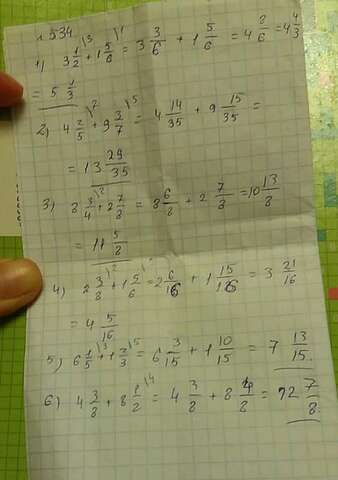 1534.
1) 3 1/2 \3 + 1 5/6 \1 = 3 3/6 + 1 5/6 = 4 8/6 = 4 4/3
= 5 1/3
2) 4 2/5 \7 + 9 3/7 \5 = 4 14/35 + 9 15/35 =
= 13 29/35
3) 8 3/4 \2 + 2 7/8 = 8 6/8 + 2 7/8 = 10 13/8
= 11 5/8
4) 2 3/8 \2 + 1 5/6 = 2 6/16 + 1 15/16 = 3 21/16
= 4 5/16
5) 6 1/5 \3 + 1 2/3 \5 = 6 3/15 + 1 10/15 = 7 13/15.
6) 4 3/8 + 8 1/2 \4 = 4 3/8 + 8 4/8 = 12 7/8.